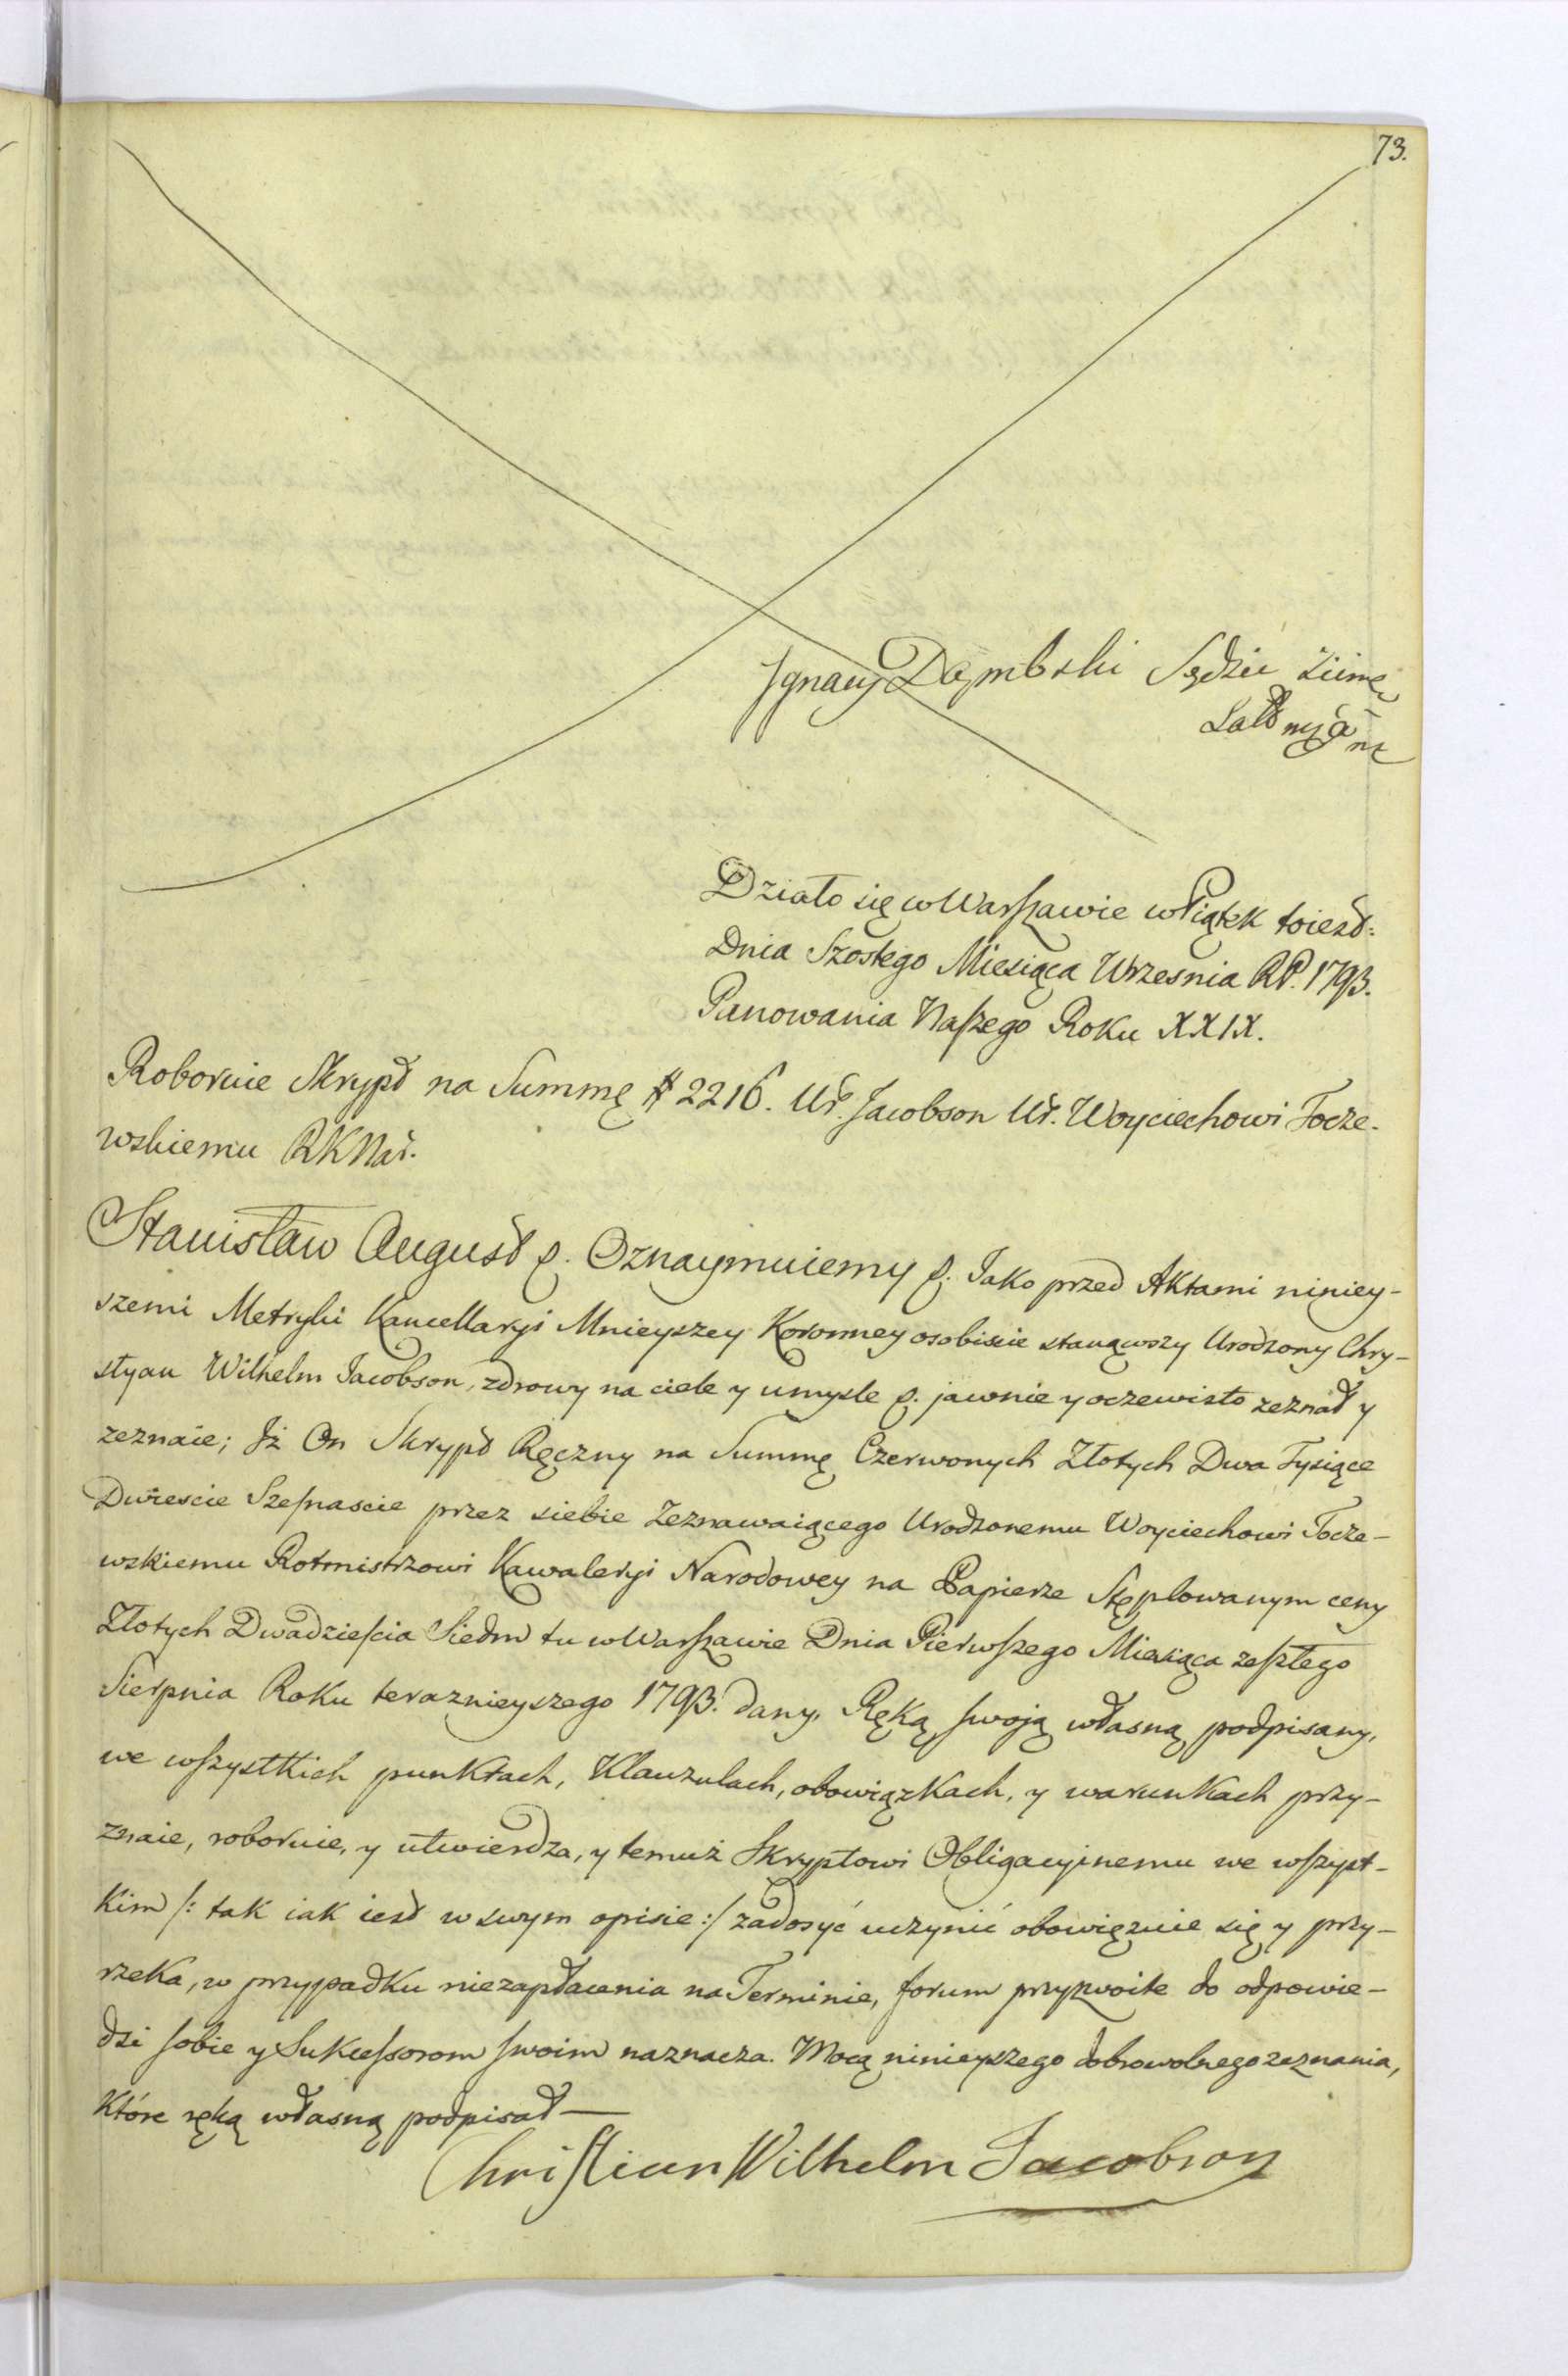 73.
Ignacy Dąmbski Sędzia Ziims.
Działo się w Warszawie w Piątek toiest:
Dnia Szostego Miesiąca Wrzesnia RP. 1793.
Panowania Naszego Roku XXIX.
Roboruie Skrypt na Summę # 2216. Ur. Jacobson Ur. Woyciechowi Tocze-
wskiemu RKNar.
Stanisław August p. Oznaymuiemy p. Jako przed Aktami niniey-
szemi Metryki Kancellaryi Mnieyszey Koronney osobiscie stanąwszy Urodzony Chry-
styan Wilhelm Jacobson, zdrowy na ciele y umysle p. jawnie y oczewisto zeznał y
zeznaie; Iż On Skrypt Ręczny na Summę Czerwonych Złotych Dwa Tysiące
Dwiescie Szesnascie przez siebie Zeznawaiącego Urodzonemu Woyciechowi Tocze-
wskiemu Rotmistrzowi Kawaleryi Narodowey na Papierze Stęplowanym ceny
Złotych Dwadziescia Siedm tu w Warszawie Dnia Pierwszego Miesiąca zeszłego
Sierpnia Roku teraznieyszego 1793. dany, Ręką swoją własną podpisany,
we wszystkich punktach, Klauzulach, obowiązkach, y warunkach przy-
znaie, roboruie, y utwierdza, y temuż Skryptowi Obligacyinemu we wszyst-
kim /: tak iak iest w swym opisie :/ zadosyć uczynić obowięzuie się y przy-
rzeka, w przypadku niezapłacenia na Terminie, forum przyzwoite do odpowie-
dzi sobie y Sukcessorom swoim naznacza. Mocą ninieyszego dobrowolnego zeznania,
które ręką własną podpisał —
Christian Wilhelm Jacobson